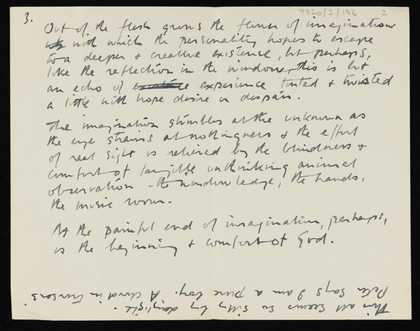 3.
7920/2/196 2
Out of the flesh grows the flower of imagination
with which the personality hopes to escape
to a deeper & creative existence, but perhaps,
like the reflection in the window, this is but
an echo of experience tinted & twisted
a little with hope desire or despair.
The imagination stumbles at the unknown as
the eye strains at nothingness & the effort
of real sight is relieved by the blindness &
comfort of tangible unthinking animal
observation - the window ledge, the hands,
the music room.
At the painful end of imagination, perhaps,
is the beginning & comfort of God.
This all seems so silly by daylight.
Peter says I am a pure boy. A child in